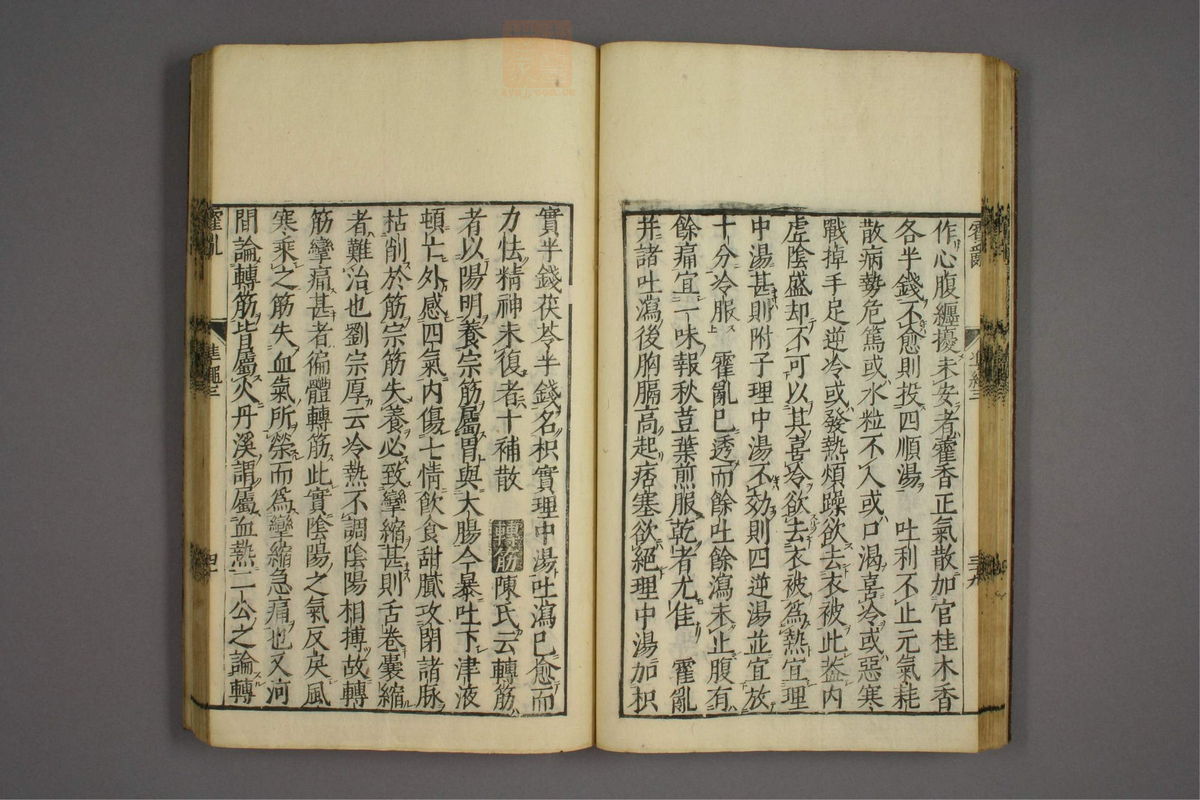 作心腹纏擾未安者藿香正氣散加官桂木香
各半錢不愈則投四順湯　吐利不止元氣耗
散病勢危篤或水粒不入或口渴喜冷或惡寒
戰掉手足逆冷或發熱煩躁欲去衣被此蓋内
虛陰盛却不可以其喜冷欲去衣被爲熱宜理
中湯甚則附子理中湯不効則四逆湯並宜放
十分冷服　霍亂已透而餘吐餘瀉未止腹有
餘痛宜一味報秋荳葉煎服乾者尤佳　霍亂
并諸吐瀉後胸膈高起痞塞欲絕理中湯加枳
實半錢茯苓半錢名枳實理中湯吐瀉已愈而
力怯精神未復者十補散　轉筋陳氏云轉筋
者以陽明養宗筋屬胃與大腸今暴吐下津液
頓亡外感四氣内傷七情飲食甜膩攻閉諸脉
枯削於筋宗筋失養必致攣縮甚則舌卷囊縮
者難治也劉宗厚云冷熱不調陰陽相搏故轉
筋攣痛甚者徧體轉筋此實陰陽之氣反戾風
寒乘之筋失血氣所榮而爲攣縮急痛也又河
間論轉筋皆屬火丹溪謂屬血熱二公之論轉
霍亂
準繩三
四十